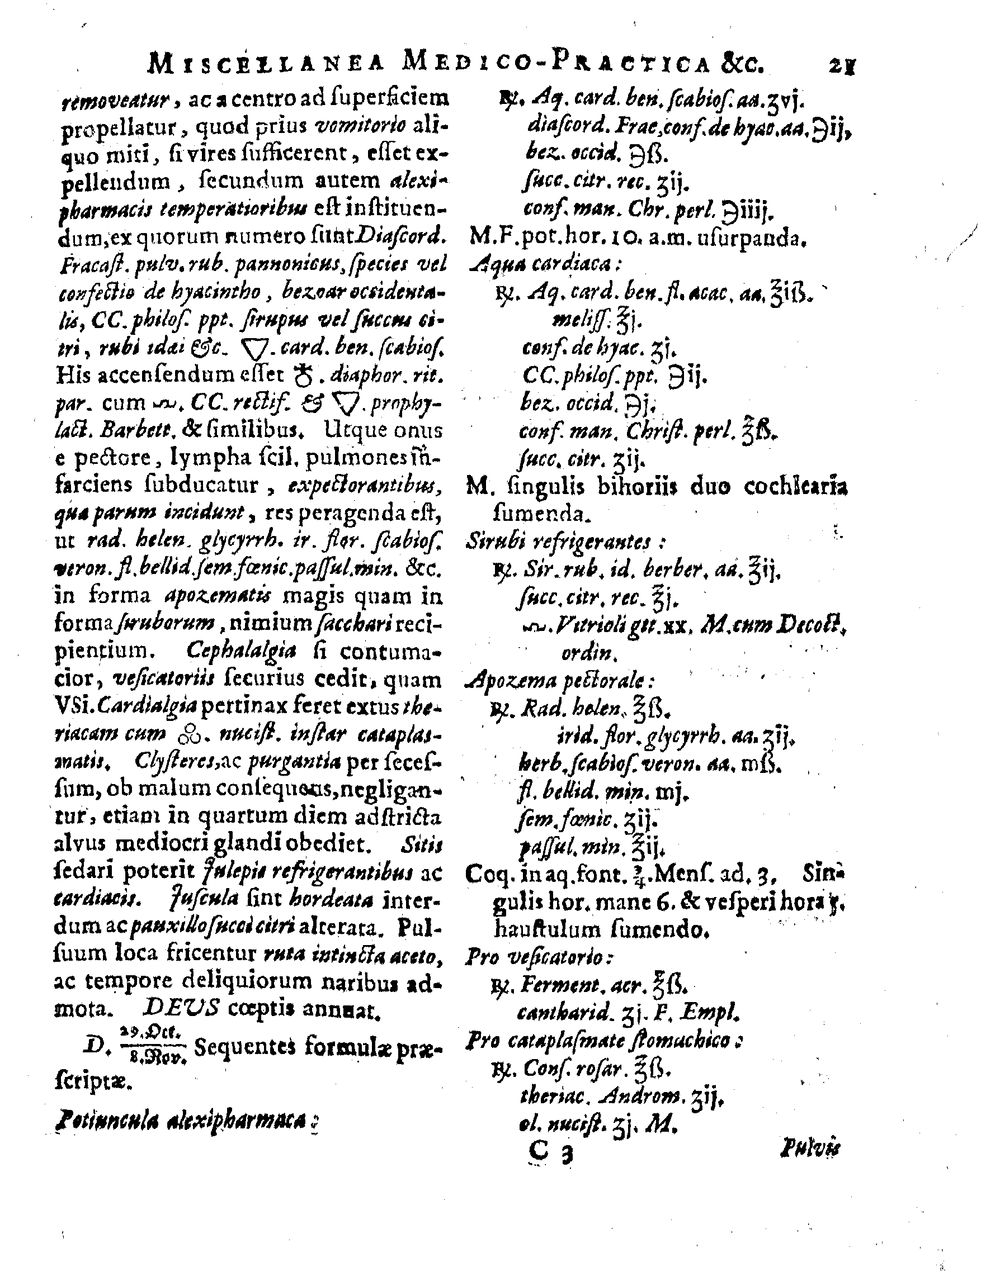 MISCELLANEA MEDICO-PRACTICA &c. 21
removeatur, ac a centro ad ſuperficiem
propellatur, quod prius vomitorio ali-
quo miti, ſi vires ſufficerent, eſſet ex-
pellendum, ſecundum autem alexi-
pharmacis temperatioribus eſt inſtituen-
dum, ex quorum numero ſunt Diaſcord.
Fracaſt. pulv. rub. pannonicus, ſpecies vel
confectio de hyacintho, bezoar occidenta-
lis, CC. philoſ. ppt. ſirupus vel ſuccus ci-
tri, rubi idæi &c. 🜄. card. ben. ſcabioſ.
His accenſendum eſſet ♁. diaphor. rit.
par. cum 🜓. CC. rectif. & 🜄. prophy-
lact. Barbett. & ſimilibus. Utque onus
e pectore, lympha ſcil. pulmones in-
farciens ſubducatur, expectorantibus,
qua parum incidunt, res peragenda eſt,
ut rad. helen. glycyrrh. ir. flor. ſcabioſ.
veron. fl. bellid. ſem. fœnic. paſſul. min. &c.
in forma apozematis magis quam in
forma ſiruborum, nimium ſacchari reci-
pientium. Cephalalgia ſi contuma-
cior, veſicatoriis ſecurius cedit, quam
VSi. Cardialgia pertinax feret extus the-
riacam cum ꝏ. nuciſt. inſtar cataplas-
matis. Clyſteres, ac purgantia per ſeceſ-
ſum, ob malum conſequens, negligan-
tur, etiam in quartum diem adſtricta
alvus mediocri glandi obediet. Sitis
ſedari poterit Julepis refrigerantibus ac
cardiacis. Juſcula ſint hordeata inter-
dum ac pauxillo ſucci citri alterata. Pul-
ſuum loca fricentur ruta intincta aceto,
ac tempore deliquiorum naribus ad-
mota. DEUS cœptis annuat.
D. 29. Oct. / 8. Nov. Sequentes formulæ præ-
ſcriptæ.
Potiuncula alexipharmaca:
℞. Aq. card. ben. ſcabioſ. aa. ʒvj.
diaſcord. Frac. conf. de hyac. aa. ℈ij,
bez. occid. ℈ß.
ſucc. citr. rec. ʒij.
conf. man. Chr. perl. ℈iiij.
M. F. pot. hor. 10. a.m. uſurpanda.
Aqua cardiaca:
℞. Aq. card. ben. fl. acac. aa. ℥iß.
meliſſ. ℥j.
conf. de hyac. ʒj.
CC. philoſ. ppt. ℈ij.
bez. occid. ℈j.
conf. man. Chriſt. perl. ℥ß.
ſucc. citr. ʒij.
M. ſingulis bihoriis duo cochlearia
ſumenda.
Sirubi refrigerantes:
℞. Sir. rub. id. berber. aa. ℥ij.
ſucc. citr. rec. ℥j.
🜓. Vitrioli gtt. xx. M. cum Decoct.
ordin.
Apozema pectorale:
℞. Rad. helen. ℥ß.
irid. flor. glycyrrh. aa. ʒij.
herb. ſcabioſ. veron. aa. mß.
fl. bellid. min. mj.
ſem. fœnic. ʒij.
paſſul. min. ℥ij.
Coq. in aq. font. ¾. Menſ. ad. 3. Sin-
gulis hor. mane 6. & veſperi hora
hauſtulum ſumendo.
Pro veſicatorio:
℞. Ferment. acr. ℥ß.
cantharid. ʒj. F. Empl.
Pro cataplaſmate ſtomachico:
℞. Conſ. roſar. ℥ß.
theriac. Androm. ʒij.
ol. nuciſt. ʒj. M.
C 3 Pulvis